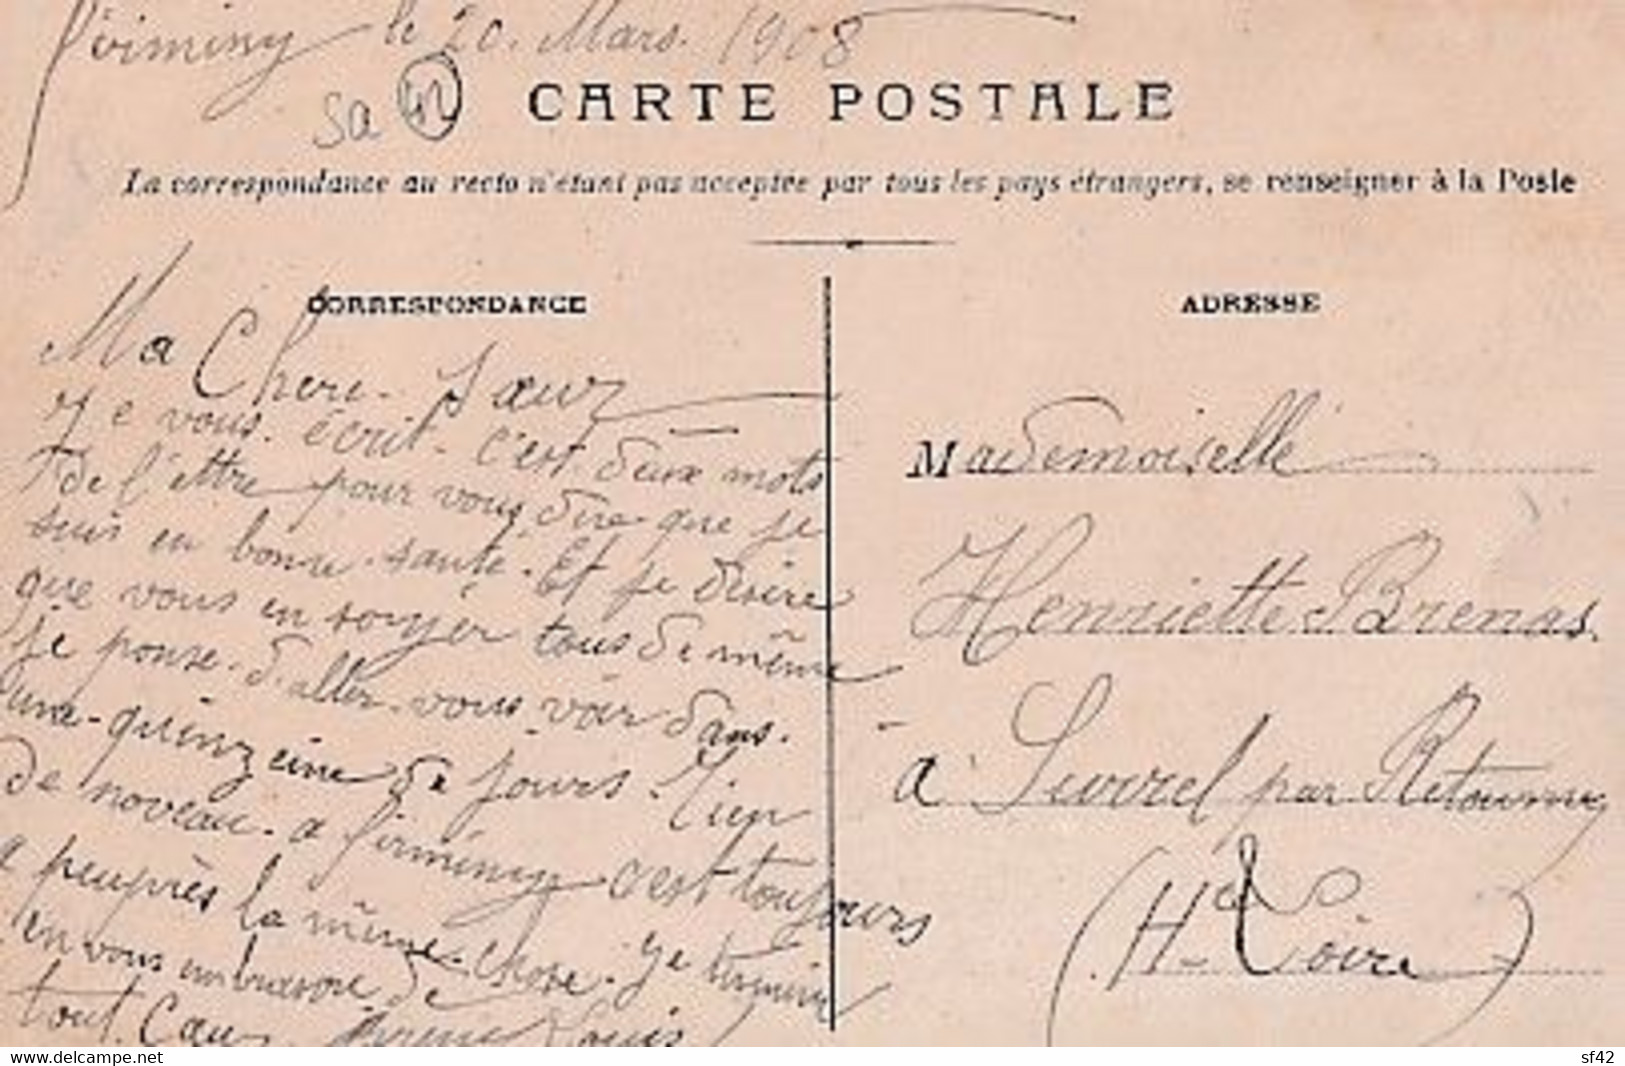 Firminy le 20. Mars. 1908
Sa 42
CARTE POSTALE
La correspondance au recto n'étant pas acceptée par tous les pays étrangers, se renseigner à la Poste
CORRESPONDANCE
Ma Chere. Sœur
Je vous. écrit. c'est. deux mots
De l'ettre pour vous dire que je
suis en bonne. santé. Et je désire
que vous en soyer tous de même
je ponse. d'aller. vous voir dans.
une. quinzeine de jours. Rien
de noveau. a firminy c'est toujours
a peuprès la même. chose. Je termine
en vous embrasore de
tout. Cœur Louis
ADRESSE
Mademoiselle
Henriette Brenas.
à Surrel par Retournay
(Hte Loire)
www.delcampe.net
sf42